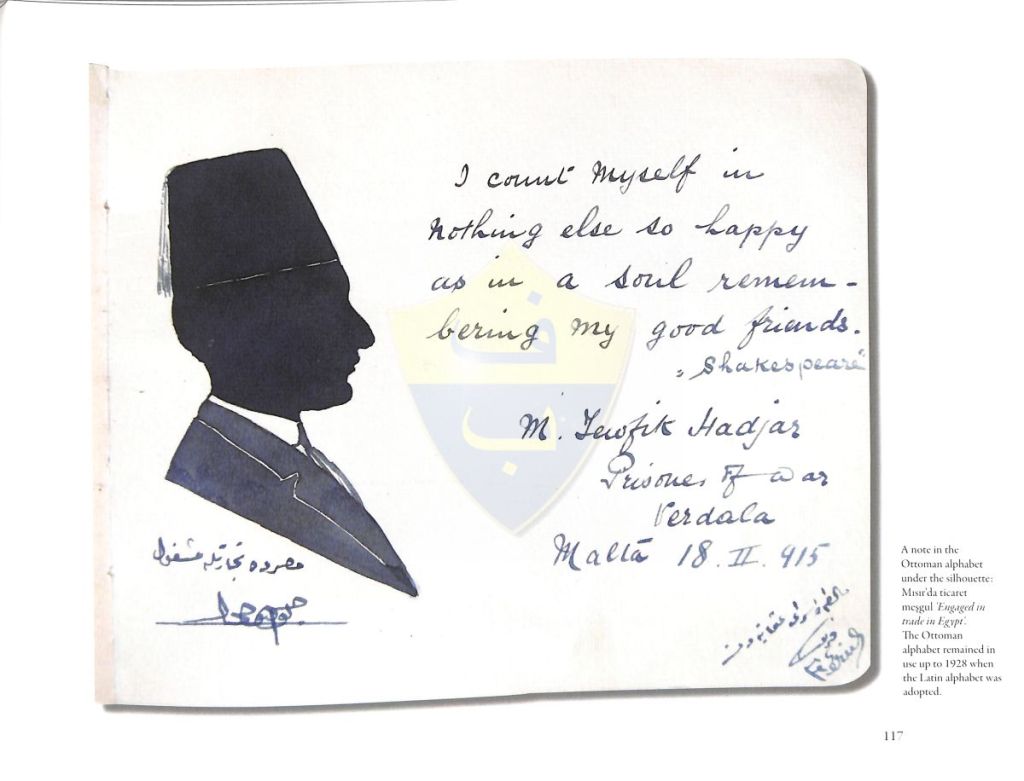 I count Myself in
Nothing else so happy
as in a soul remem -
bering My good friends.
„Shakespeare"
M. Tewfik Hadjar
Prisoner of war
Verdala
Malta 18. II. 915
مصرده تجارتله مشغول
ف
ب
A note in the
Ottoman alphabet
under the silhouette:
Mısır'da ticaret
meşgul 'Engaged in
trade in Egypt'.
The Ottoman
alphabet remained in
use up to 1928 when
the Latin alphabet was
adopted.
117